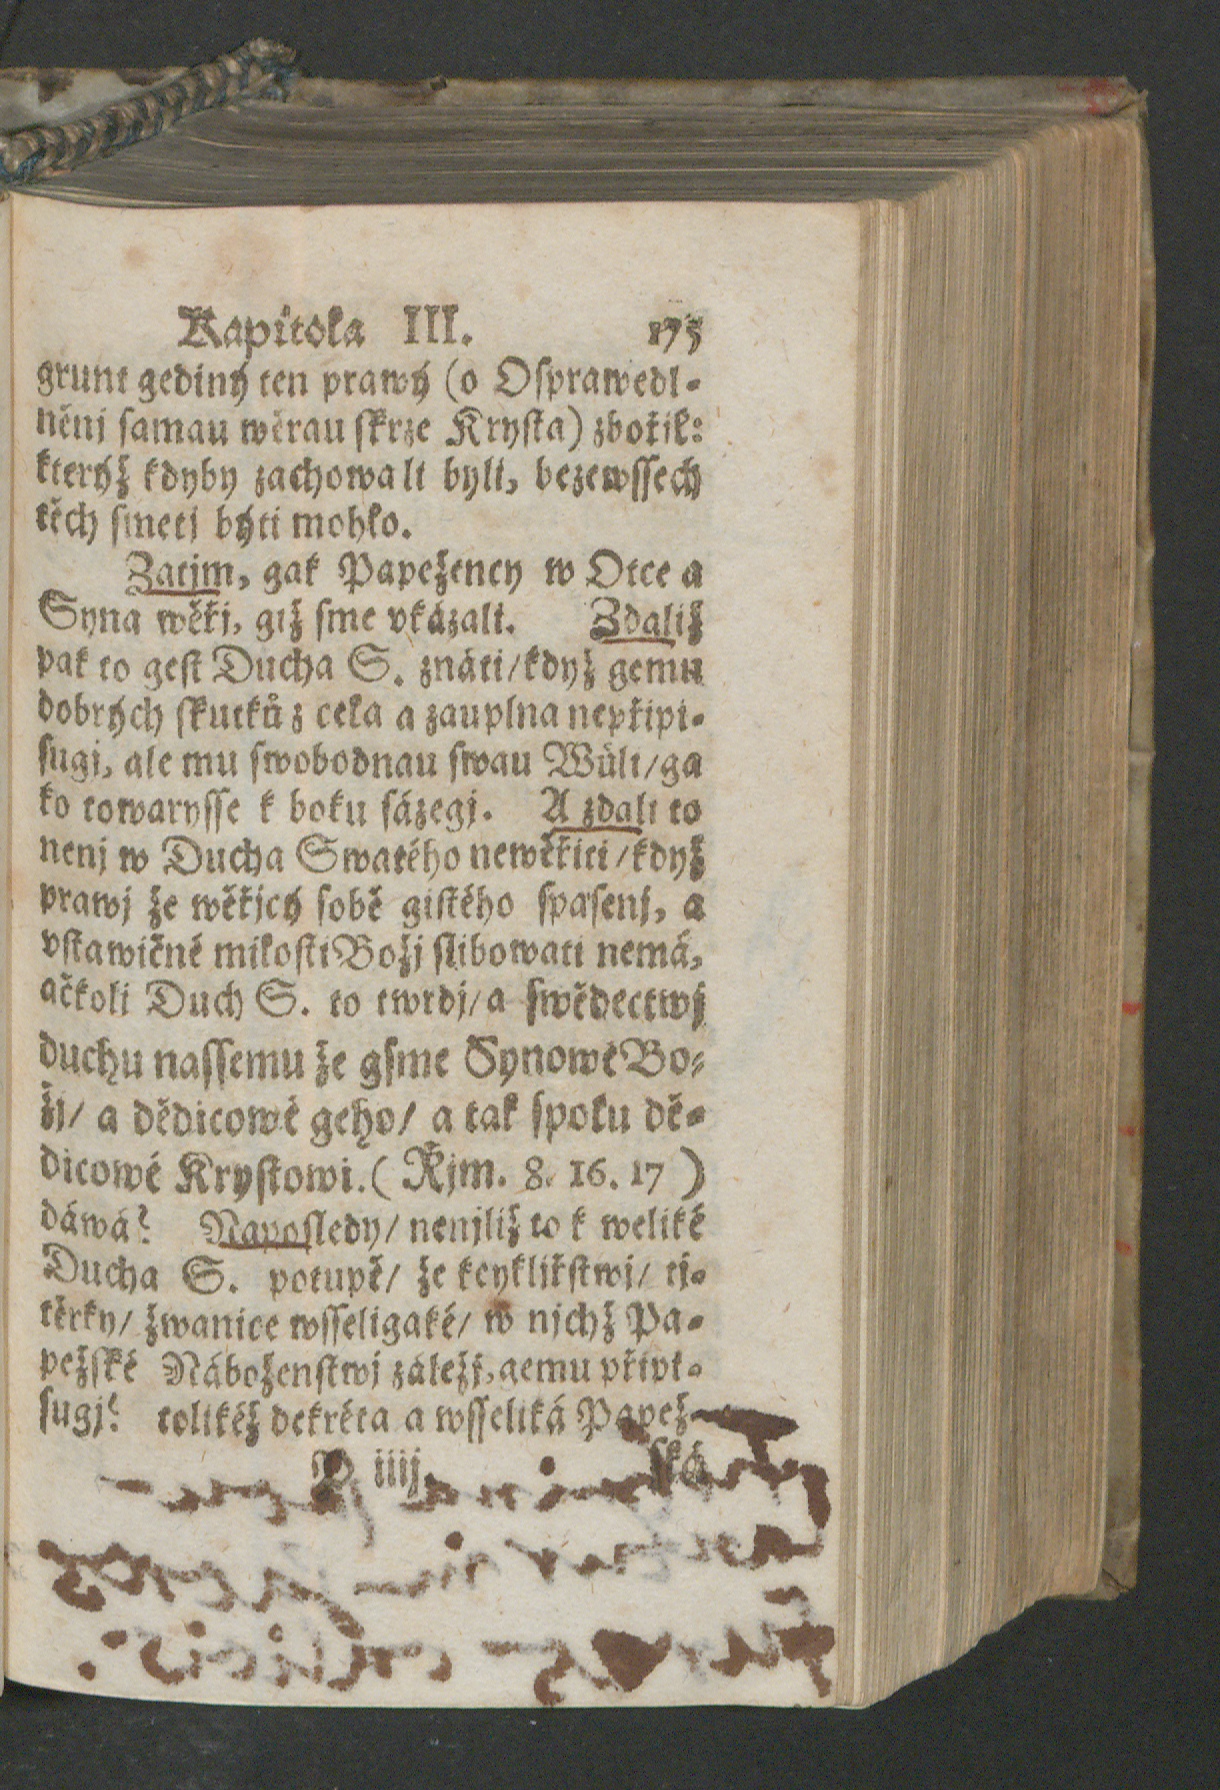 Kapitola III. 175
grunt gediný ten prawý (o Osprawedl-
něnj samau wěrau skrze Krysta) zbořil:
kterýž kdyby zachowali byli, bezewssech
těch smetj býti mohlo.
Zatjm, gak Papežency w Otce a
Syna wěřj, giž sme vkázali. Zdaliž
pak to gest Ducha S. znáti/když gemu
dobrých skutků z cela a zauplna nepřipi-
sugj, ale mu swobodnau swau Wůli/ga
ko towarysse k boku sázegj. A zdali to
nenj w Ducha Swatého newěřiti/když
prawj že wěřjcý sobě gistého spasenj, a
vstawičné milosti Božj slibowati nemá,
ačkoli Duch S. to twrdj/a swědectwj
duchu nassemu že gsme Synowé Bo-
žj/ a dědicowé geho/ a tak spolu dě-
dicowé Krystowi. (Řjm. 8. 16. 17)
dáwá? Naposledy/ nenjliž to k weliké
Ducha S. potupě/ že kcykljřstwj/ tj-
těrky/ žwanice wsseligaké/ w njchž Pa-
pežské Náboženstwj záležj, gemu připi-
sugj? tolikéž dekréta a wsseliká Papež-
P iiij. ská